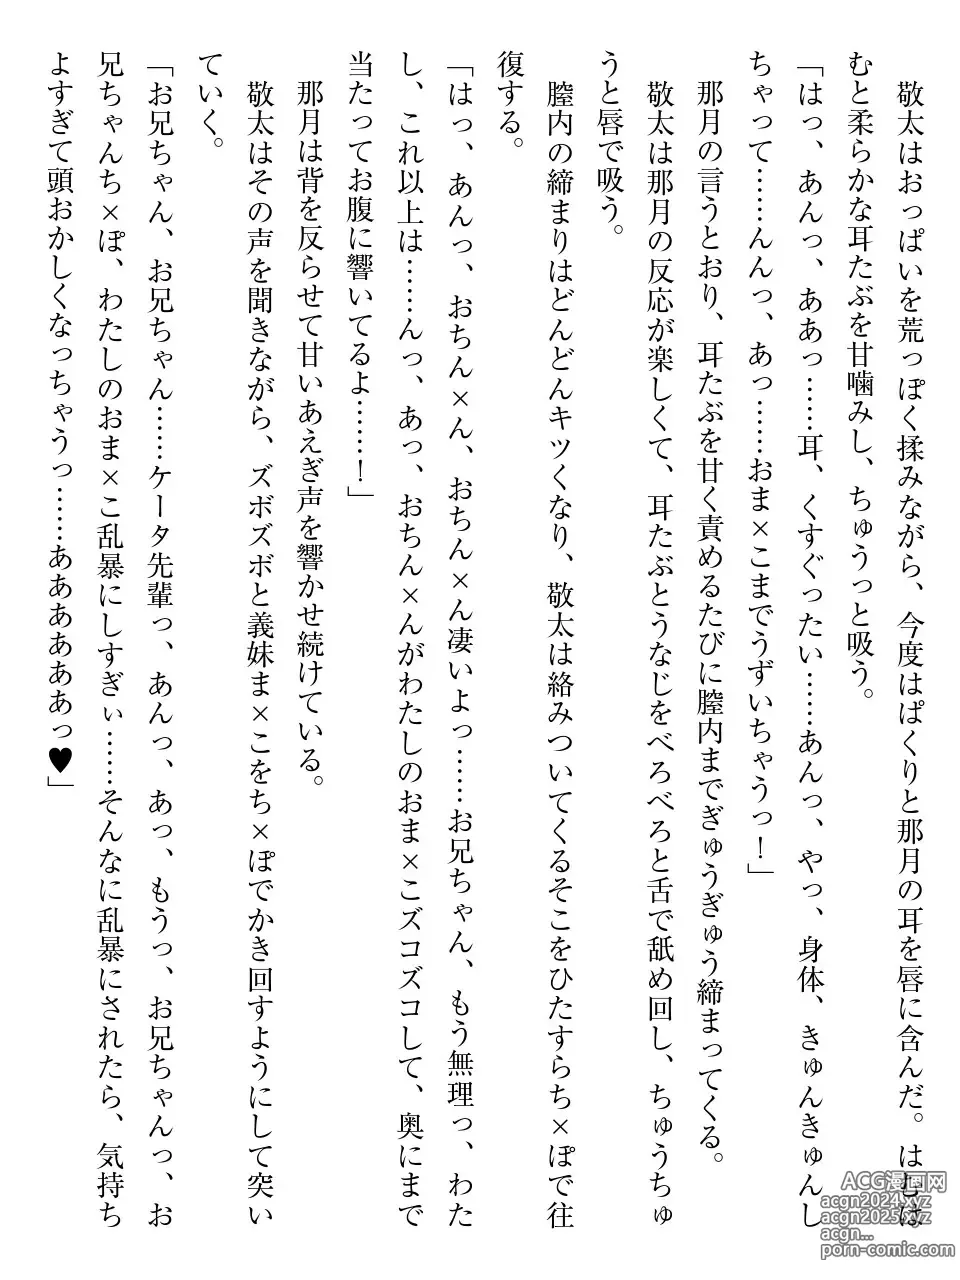 敬太はおっぱいを荒っぽく揉みながら、今度はぱくりと那月の耳を唇に含んだ。はむは
むと柔らかな耳たぶを甘噛みし、ちゅうっと吸う。
「はっ、あんっ、ああっ……耳、くすぐったい……あんっ、やっ、身体、きゅんきゅんし
ちゃって……んんっ、あっ……おま×こまでうずいちゃうっ！」
那月の言うとおり、耳たぶを甘く責めるたびに膣内までぎゅうぎゅう締まってくる。
敬太は那月の反応が楽しくて、耳たぶとうなじをべろべろと舌で舐め回し、ちゅうちゅ
うと唇で吸う。
膣内の締まりはどんどんキツくなり、敬太は絡みついてくるそこをひたすらち×ぽで往
復する。
「はっ、あんっ、おちん×ん、おちん×ん凄いよっ……お兄ちゃん、もう無理っ、わた
し、これ以上は……んっ、あっ、おちん×んがわたしのおま×こズコズコして、奥にまで
当たってお腹に響いてるよ……！」
那月は背を反らせて甘いあえぎ声を響かせ続けている。
敬太はその声を聞きながら、ズボズボと義妹ま×こをち×ぽでかき回すようにして突い
ていく。
「お兄ちゃん、お兄ちゃん……ケータ先輩っ、あんっ、あっ、もうっ、お兄ちゃんっ、お
兄ちゃんち×ぽ、わたしのおま×こ乱暴にしすぎぃ……そんなに乱暴にされたら、気持ち
よすぎて頭おかしくなっちゃうっ……ああああああっ♥」
ACG漫画网
acgn2024.xyz
acgn2025.xyz
acgn...
porn-comic.com